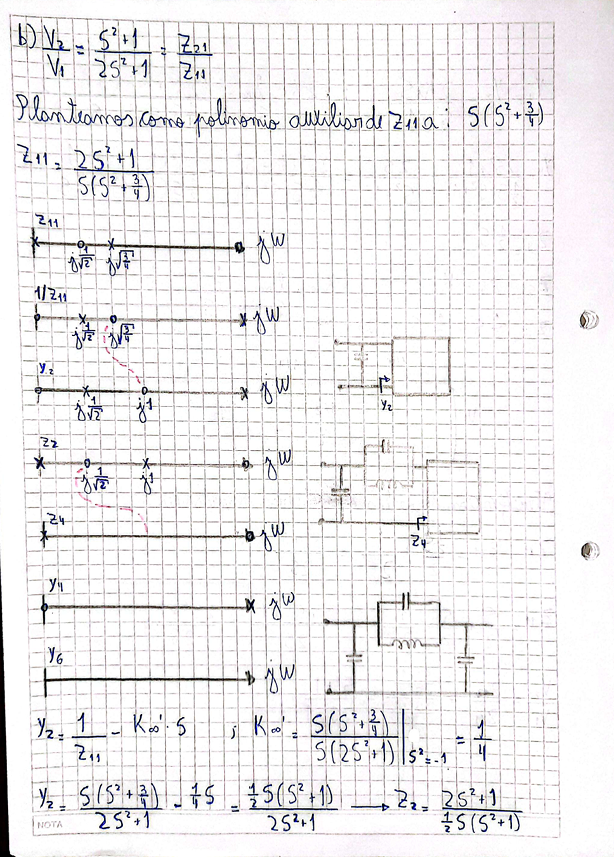 b) V₂/V₁ = (S²+1)/(2S²+1) = Z₂₁/Z₁₁
Planteamos como polinomio auxiliar de Z₁₁ a: S(S²+3/4)
Z₁₁ = (2S²+1)/(S(S²+3/4))
Z₁₁
jW
j1/√2 j√(3/4)
1/Z₁₁
jW
j1/√2 j√(3/4)
Y₂
jW
j1/√2 j1
Y₂
Z₂
jW
j1/√2 j1
Z₄
jW
Z₄
Y₄
jW
Y₆
jW
Y₂ = 1/Z₁₁ - K∞'·S ; K∞' = S(S²+3/4)/(S(2S²+1))|S²=-1 = 1/4
Y₂ = S(S²+3/4)/(2S²+1) - 1/4 S = 1/2 S(S²+1)/(2S²+1) → Z₂ = (2S²+1)/(1/2 S(S²+1))
NOTA